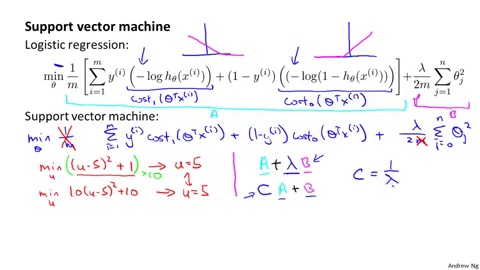 Support vector machine
Logistic regression:
min_θ 1/m [ ∑_{i=1}^{m} y^{(i)} (−log h_θ(x^{(i)})) + (1 − y^{(i)}) ((−log(1 − h_θ(x^{(i)}))) ] + λ/2m ∑_{j=1}^{n} θ_j^2
cost_1(θ^T x^{(i)}) cost_0(θ^T x^{(i)})
A B
Support vector machine:
min_θ 1/m ∑_{i=1}^{m} y^{(i)} cost_1(θ^T x^{(i)}) + (1-y^{(i)}) cost_0(θ^T x^{(i)}) + λ/2m ∑_{j=0}^{n} θ_j^2
min_u (u-5)^2 + 1 → u=5
×10
min_u 10(u-5)^2 + 10 → u=5
A + λ B ←
→ C A + B
C = 1/λ
Andrew Ng